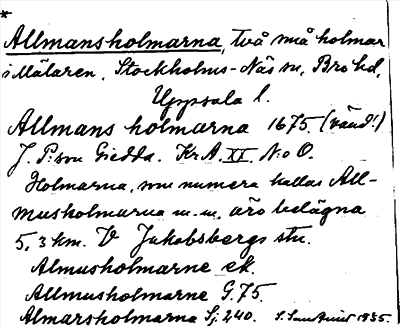 *
Allmansholmarna, två små holmar
i Mälaren, Stockholms-Näs sn, Bro hd,
Uppsala l.
Allmans holmarna 1675 (vänd!)
J. P:son Giedda. Kr.A. XI N:o O.
Holmarna, som numera kallas All-
musholmarna m.m., äro belägna
5,3 km. V Jakobsbergs stn.
Almusholmarne ek.
Allmusholmarne G.75.
Almarsholmarna Sj. 240. 1935.